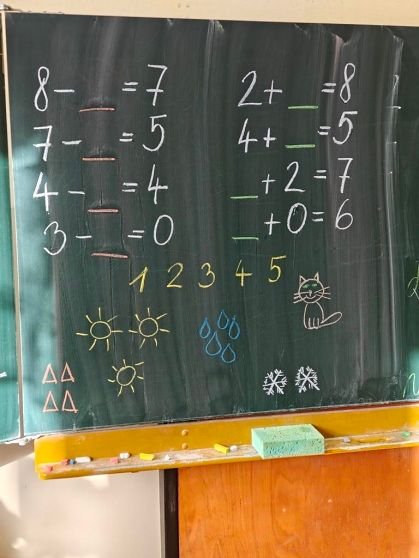 8- _ =7
7- _ =5
4- _ =4
3- _ =0
2+ _ =8
4+ _ =5
_ +2=7
_ +0=6
1 2 3 4 5